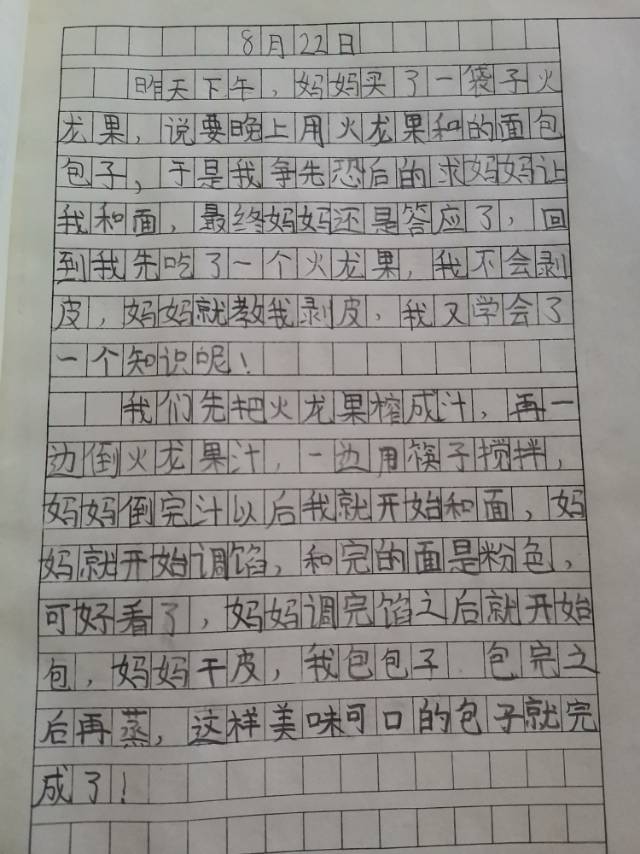 8月22日
昨天下午，妈妈买了一袋子火
龙果，说要晚上用火龙果和的面包
包子，于是我争先恐后的求妈妈让
我和面，最终妈妈还是答应了，回
到我先吃了一个火龙果，我不会剥
皮，妈妈就教我剥皮，我又学会了
一个知识呢！
我们先把火龙果榨成汁，再一
边倒火龙果汁，一边用筷子搅拌，
妈妈倒完汁以后我就开始和面，妈
妈就开始调馅，和完的面是粉色，
可好看了，妈妈调完馅之后就开始
包，妈妈干皮，我包包子 包完之
后再蒸，这样美味可口的包子就完
成了！